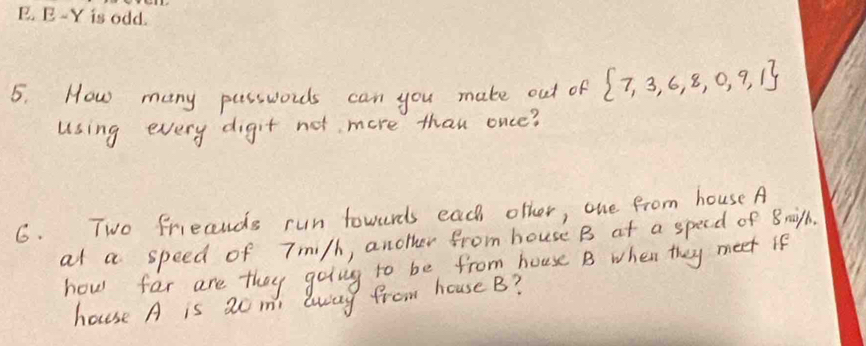 E. E-Y is odd.
5. How many passwords can you make out of {7, 3, 6, 8, 0, 9, 1}
using every digit not more than once?
6. Two frieands run towards each other, one from house A
at a speed of 7mi/h, another from house B at a speed of 8mi/h.
how far are they going to be from house B when they meet if
house A is 20 mi away from house B?